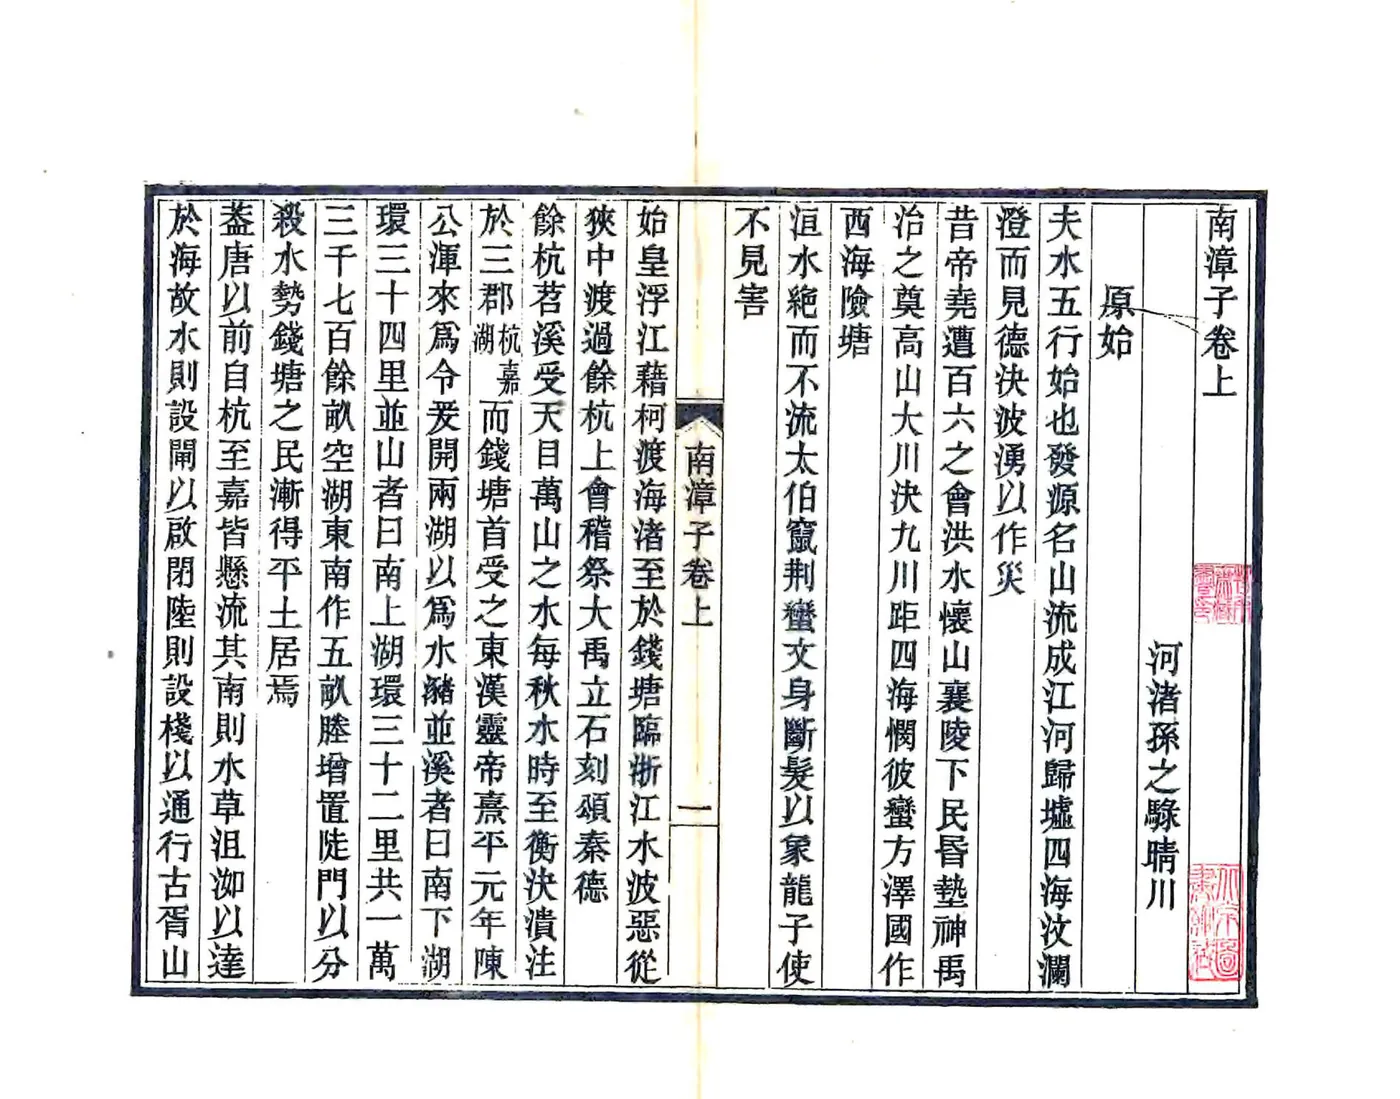 南漳子卷上
河渚孫之騄晴川
原始
夫水五行始也發源名山流成江河歸墟四海汶瀾
澄而見德決波湧以作災
昔帝堯遭百六之會洪水懷山襄陵下民昏墊神禹
治之奠高山大川決九川距四海憫彼蠻方澤國作
西海險塘
洹水絶而不流太伯竄荆蠻文身斷髮以象龍子使
不見害
南漳子卷上
一
始皇浮江藉柯渡海渚至於錢塘臨浙江水波惡從
狹中渡過餘杭上會稽祭大禹立石刻頌秦德
餘杭苕溪受天目萬山之水每秋水時至衝決潰注
於三郡杭嘉湖而錢塘首受之東漢靈帝熹平元年陳
公渾來爲令爰開兩湖以爲水豬並溪者曰南下湖
環三十四里並山者曰南上湖環三十二里共一萬
三千七百餘畝空湖東南作五畝塍增置陡門以分
殺水勢錢塘之民漸得平土居焉
葢唐以前自杭至嘉皆懸流其南則水草沮洳以達
於海故水則設閘以啟閉陸則設棧以通行古胥山